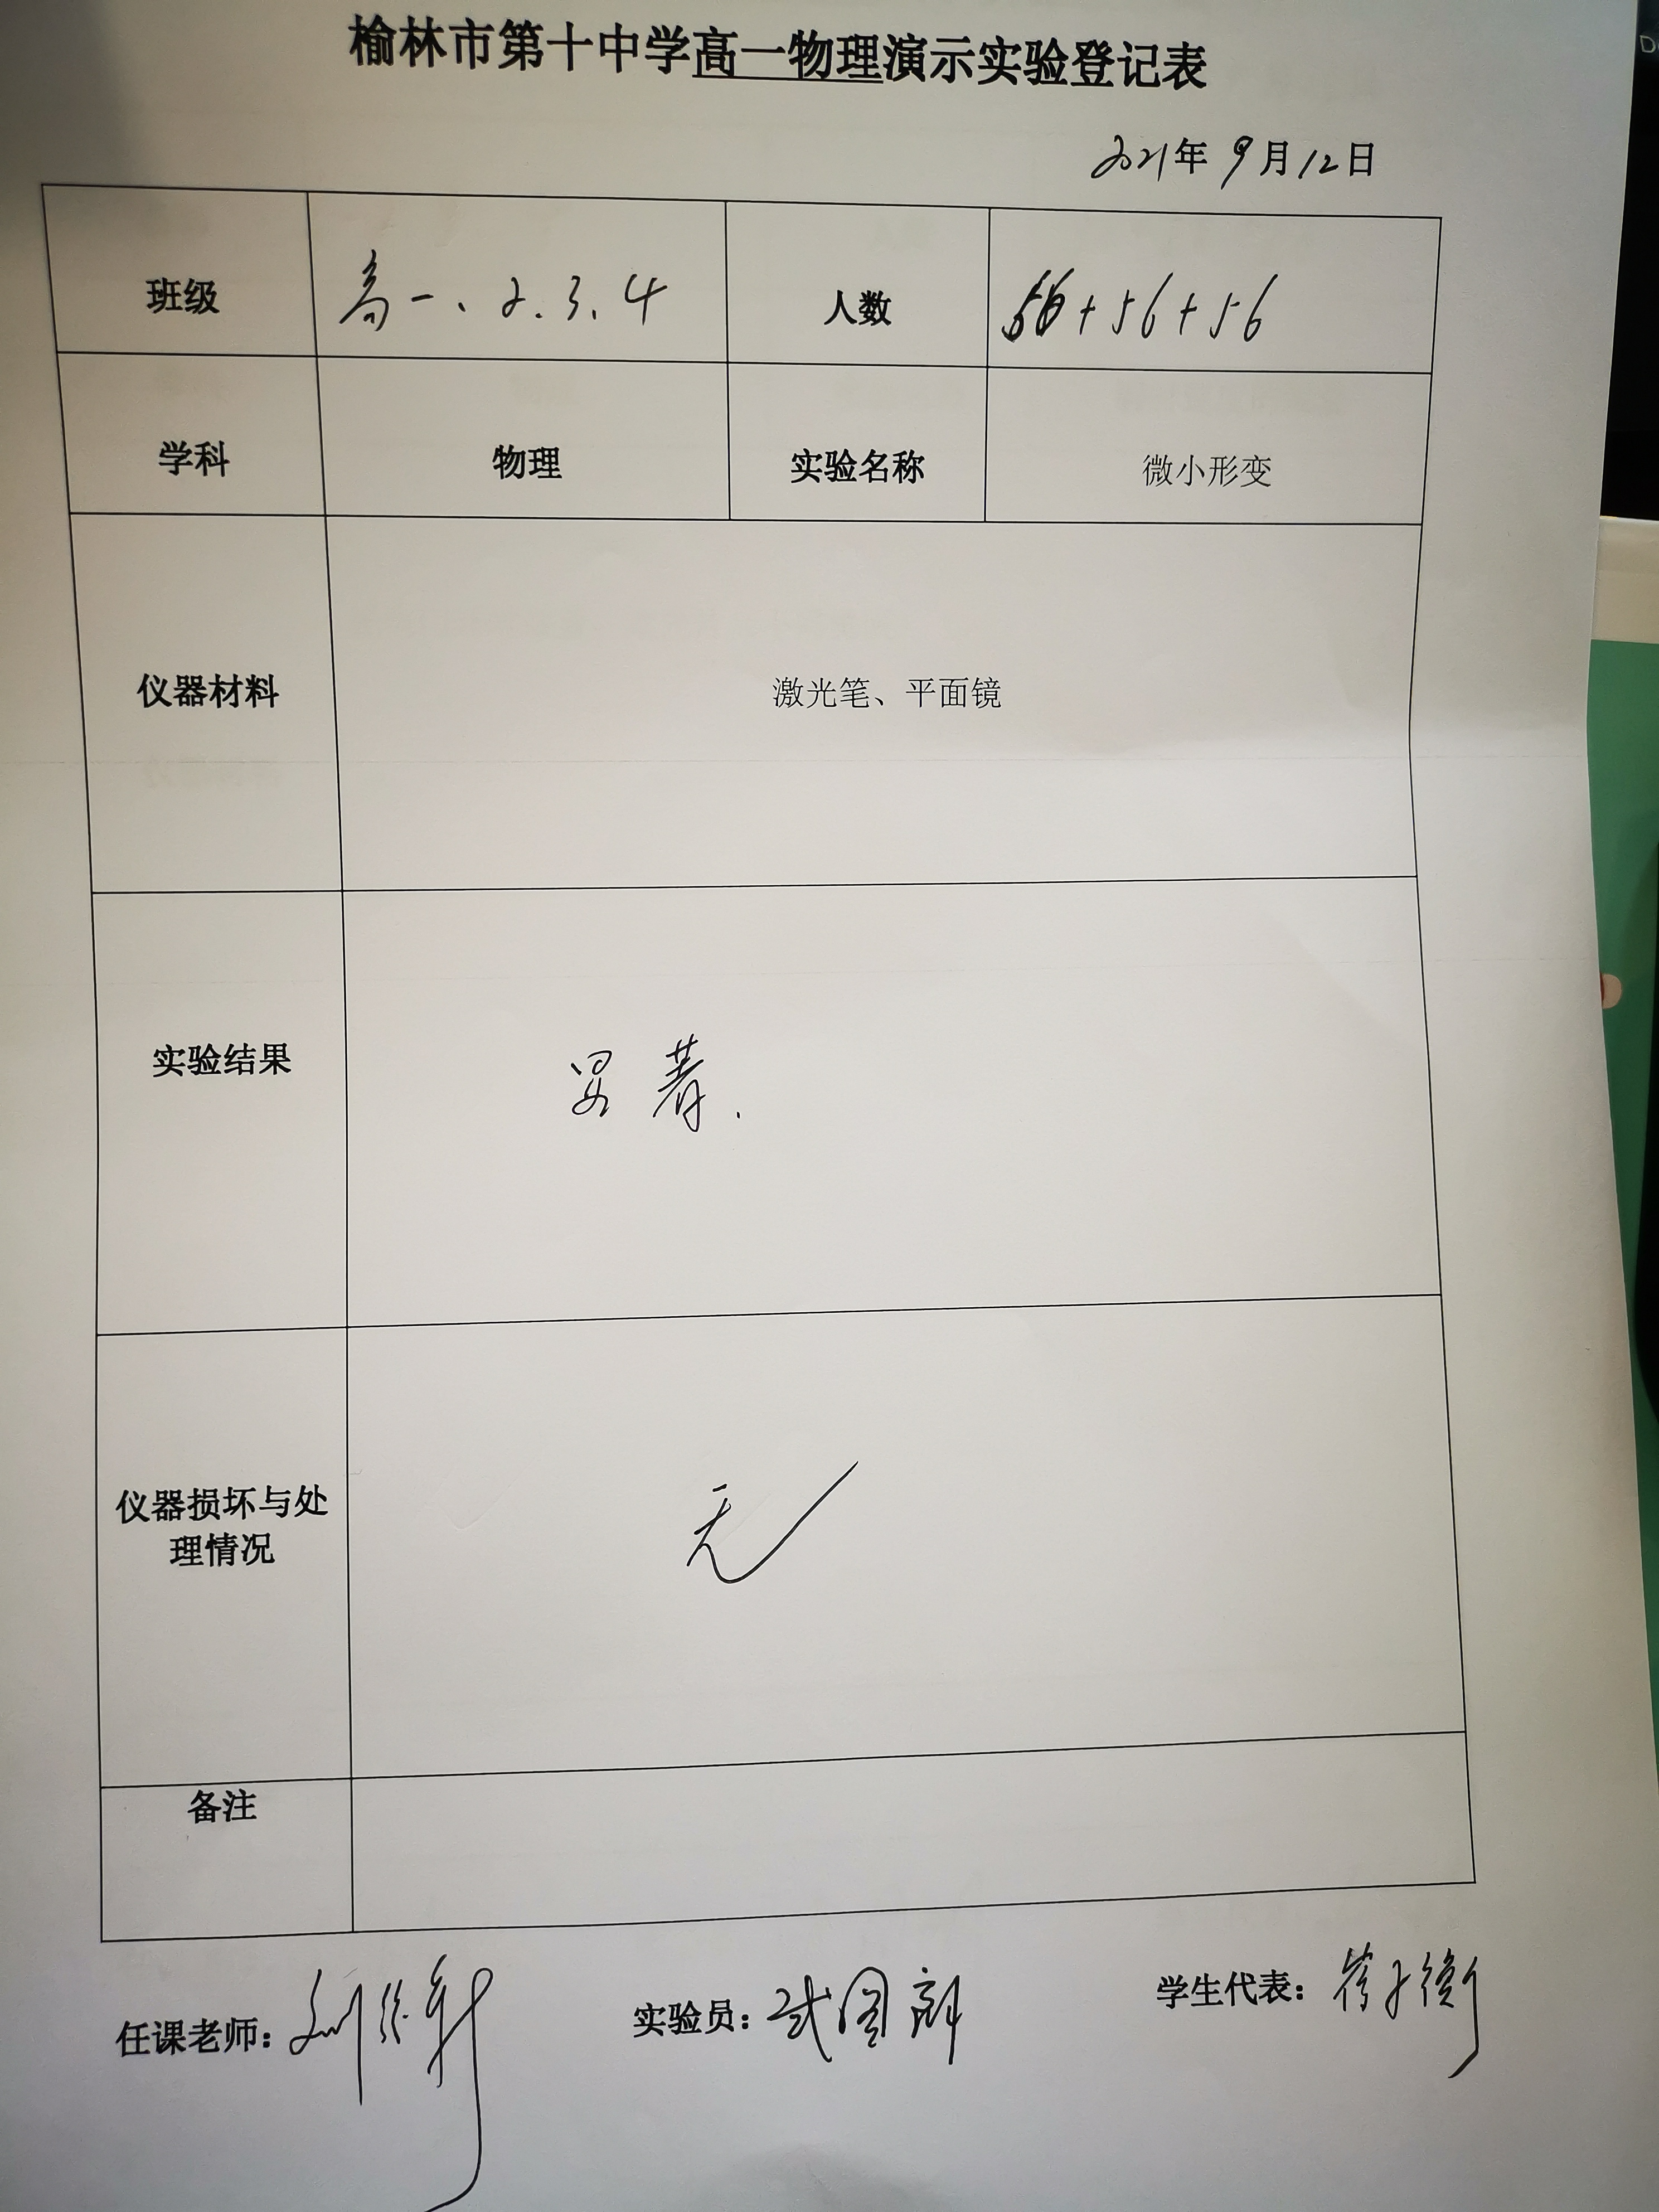 榆林市第十中学高一物理演示实验登记表
2021年9月12日
班级 高一、2.3.4 人数 56+56+56
学科 物理 实验名称 微小形变
仪器材料 激光笔、平面镜
实验结果 显著.
仪器损坏与处
理情况 无
备注
任课老师: 实验员: 学生代表: